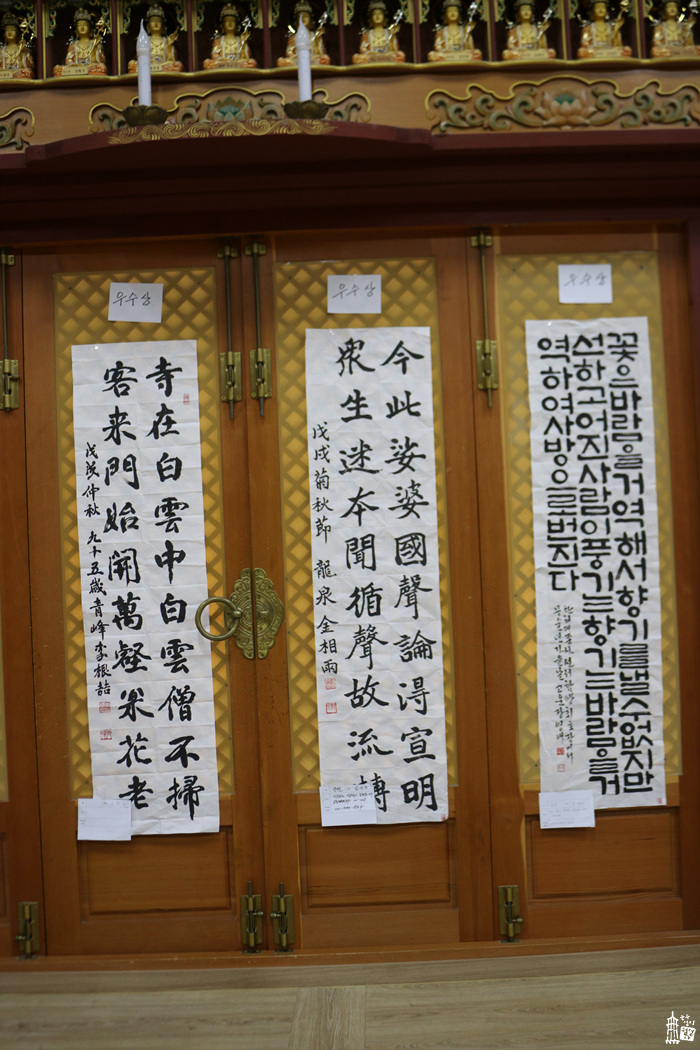 우수상
우수상
우수상
寺在白雲中白雲僧不掃
客来門始開萬壑枀花老
戊戌仲秋 九十五歲青峰李根喆
今此娑婆國聲論得宣明
衆生迷本聞循聲故流轉
戊戌菊秋節 龍泉金相雨
꽃은바람을거역해서향기를낼수없지만
선하고어진사람이풍기는향기는바람을거
역하여사방으로번진다